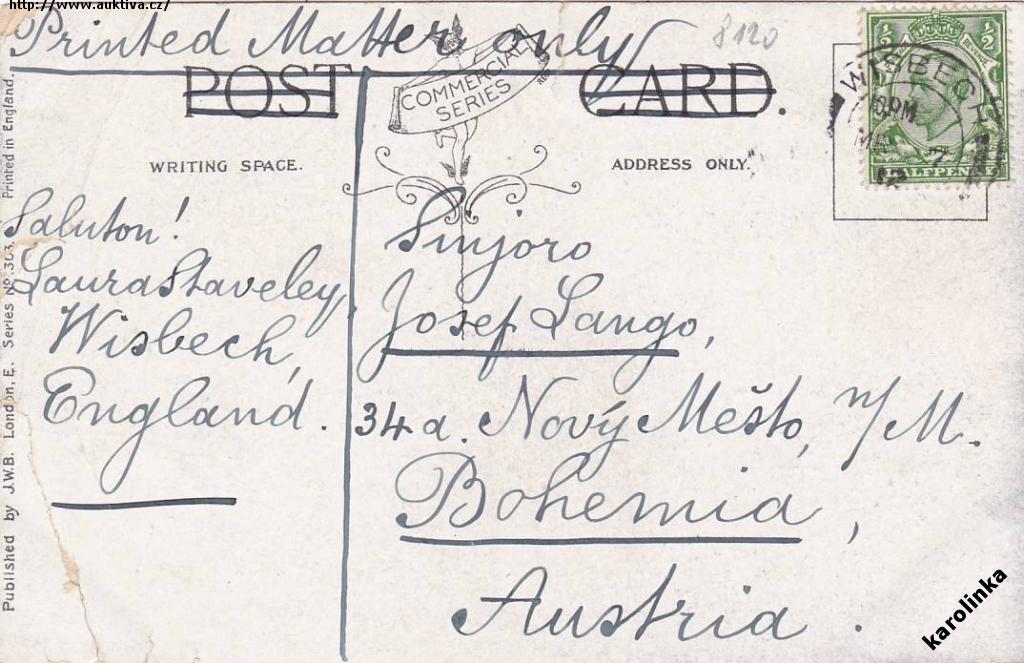 http://www.auktiva.cz/
Printed Matter only
8120
POST CARD.
COMMERCIAL
SERIES
REGD
WRITING SPACE.
ADDRESS ONLY.
WISBECH
MA 7
12
HALFPENNY
Saluton!
Laura Staveley,
Wisbech,
England.
Sinjoro
Josef Lango,
34a. Nový Mešto, n/M.
Bohemia,
Austria.
Published by J.W.B. London, E. Series No 303. Printed in England.
karolinka